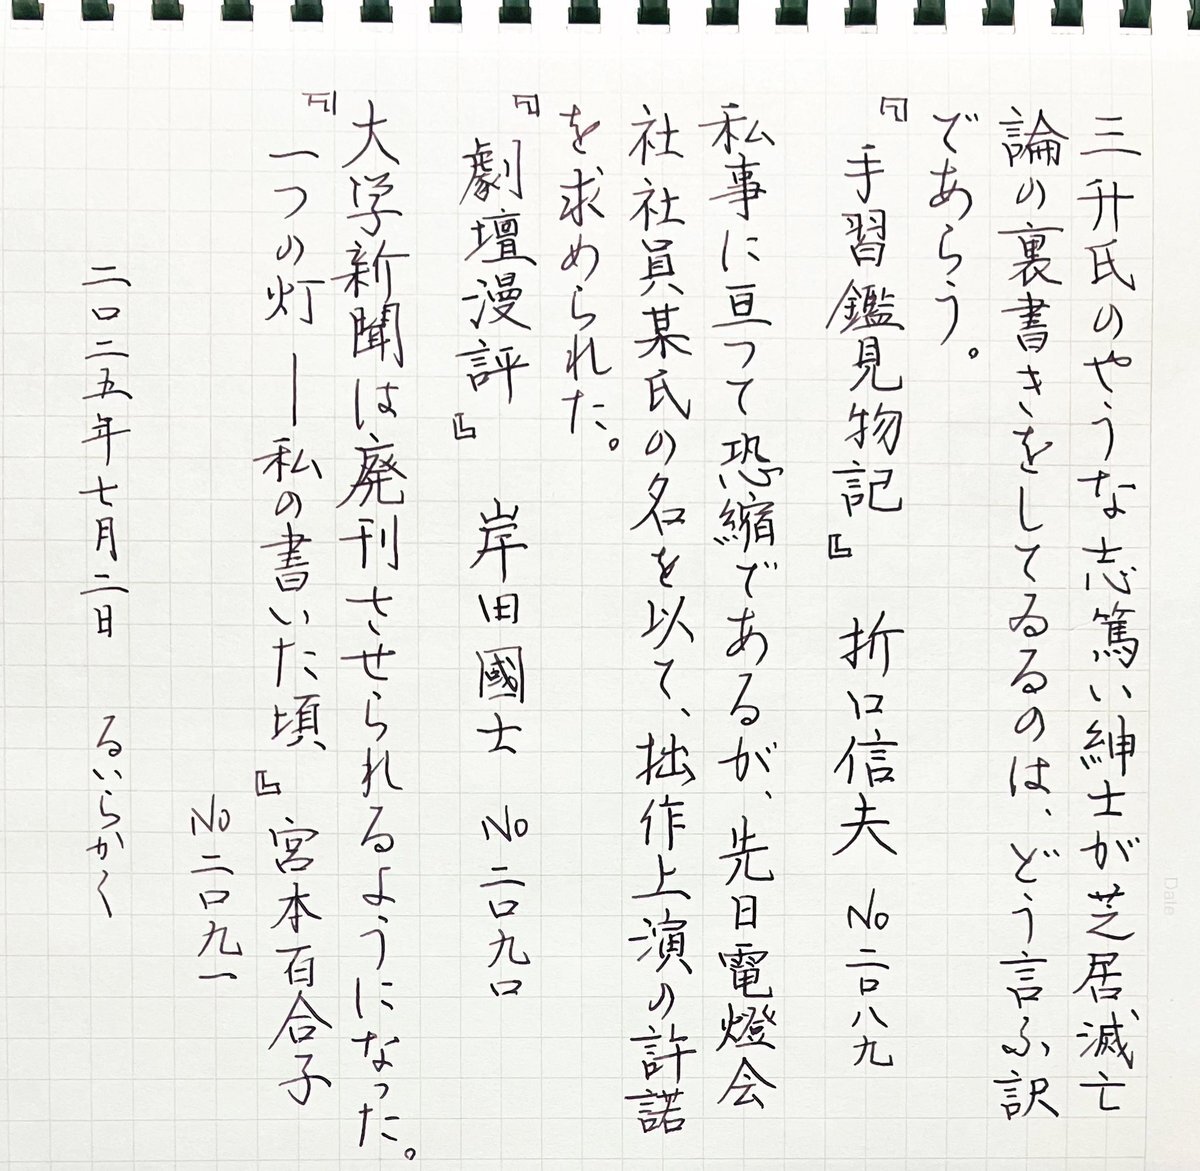 三升氏のやうな志篤い紳士が芝居滅亡
論の裏書きをしてゐるのは、どう言ふ訳
であらう。
『手習鑑見物記』 折口信夫 No二〇八九
私事に亘つて恐縮であるが、先日電燈会
社社員某氏の名を以て、拙作上演の許諾
を求められた。
『劇壇漫評』 岸田國士 No二〇九〇
大学新聞は廃刊させられるようになった。
『一つの灯 ―私の書いた頃』宮本百合子
No二〇九一
二〇二五年七月二日 るいらかく
Date